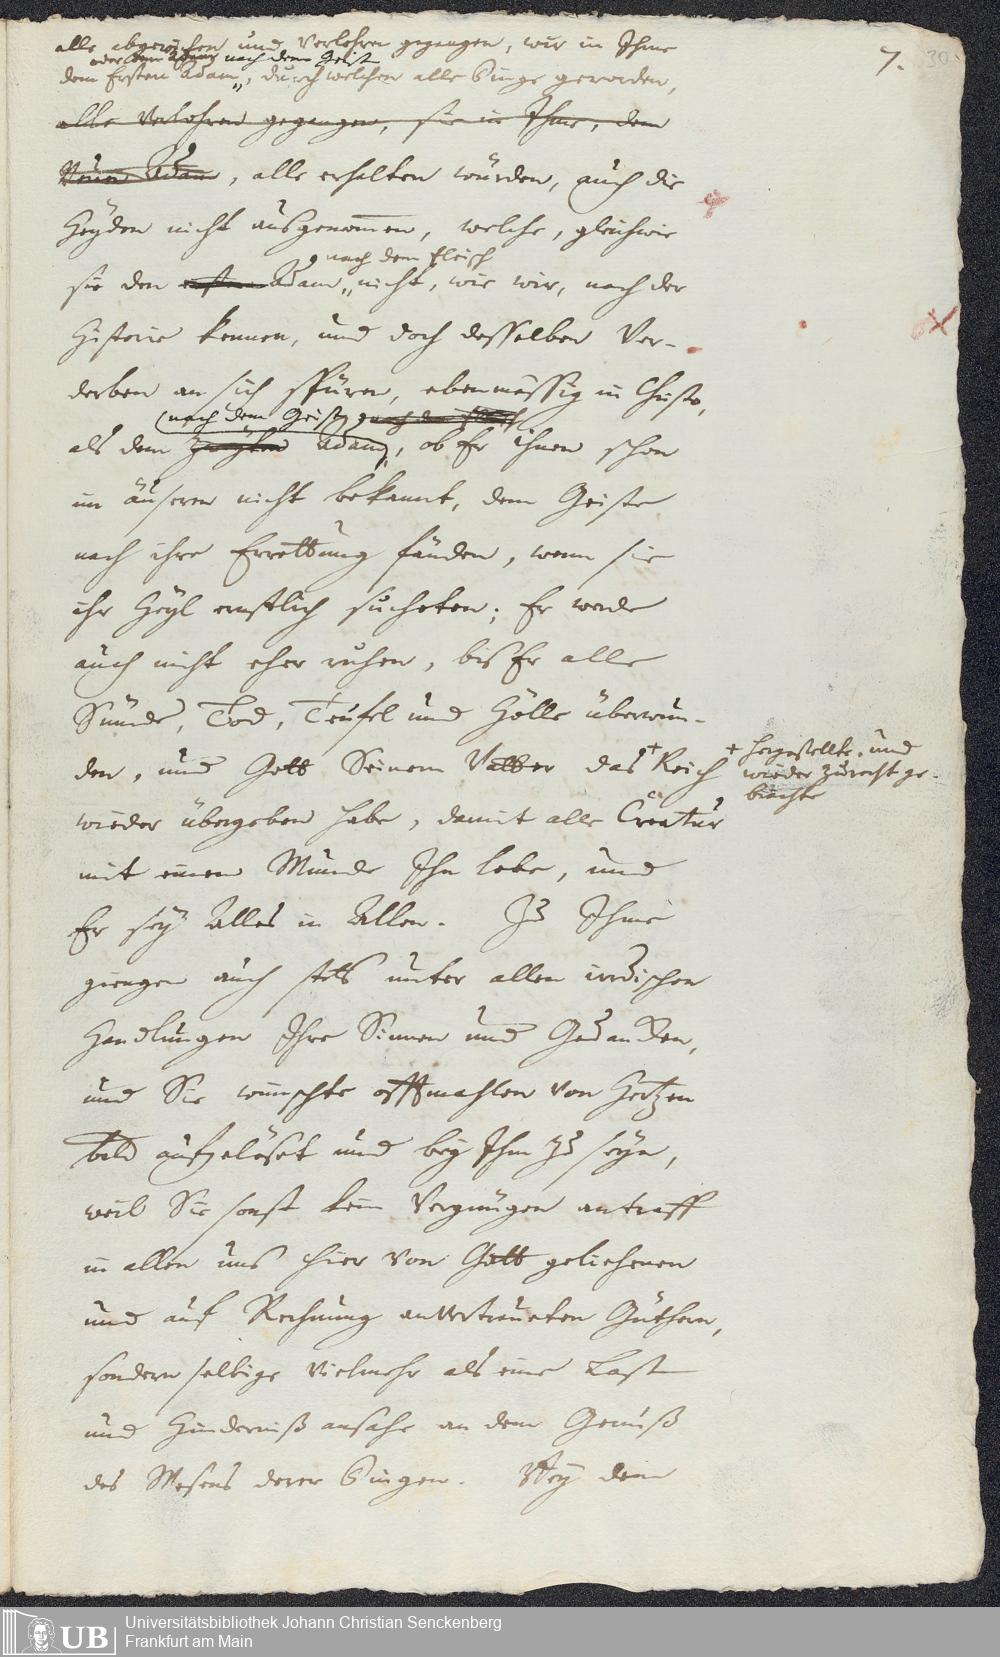 7. 30
alle abgewichen und verlohren gegangen, wir in Ihme
oder dem Adam nach dem Geist
dem Ersten Adam, durch welchen alle Dinge geworden,
alle verlohren gegangen, sie in Ihme, dem
Neuen Adam, alle erhalten würden, auch die
Heyden nicht ausgenomen, welche, gleichwie
nach dem Fleisch
sie den ersten Adam nicht, wie wir, nach der
Historie kennen, und doch desselben Ver-
derben an sich spüren, ebenmässig in Christo,
(nach dem Geist) nach dem Fleisch
als dem zweyten Adam, ob Er ihnen schon
im äuseren nicht bekannt, dem Geiste
nach ihre Errettung fänden, wenn sie
ihr Heyl ernstlich sucheten; Er werde
auch nicht eher ruhen, bis Er alle
Sünde, Tod, Teufel und Hölle überwun-
den, und Gott Seinem Vatter das + Reich
+ hergestellte, und
wieder zurecht ge-
brachte
wieder übergeben habe, damit alle Creatur
mit einem Munde Ihn lobe, und
Er sey Alles in Allen. Zu Ihme
giengen auch stets unter allen irrdischen
Handlungen Ihre Sinnen und Gedancken,
und Sie wünschte offtmahlen von Hertzen
bald aufgelöset und bey Ihm zu seyn,
weil Sie sonst kein Vergnügen antraff
in allen uns hier von Gott geliehenen
und auf Rechnung anvertraueten Güthern,
sondern selbige vielmehr als eine Last
und Hinderniß ansahe an dem Genuß
des Wesens derer Dingen. Bey dem
Universitätsbibliothek Johann Christian Senckenberg
Frankfurt am Main
UB